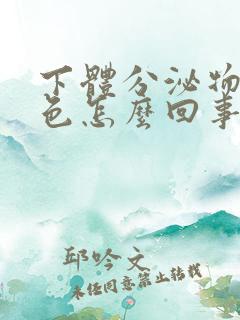 下體分泌物
色怎麼回事
邱吟文
未经同意禁止转载